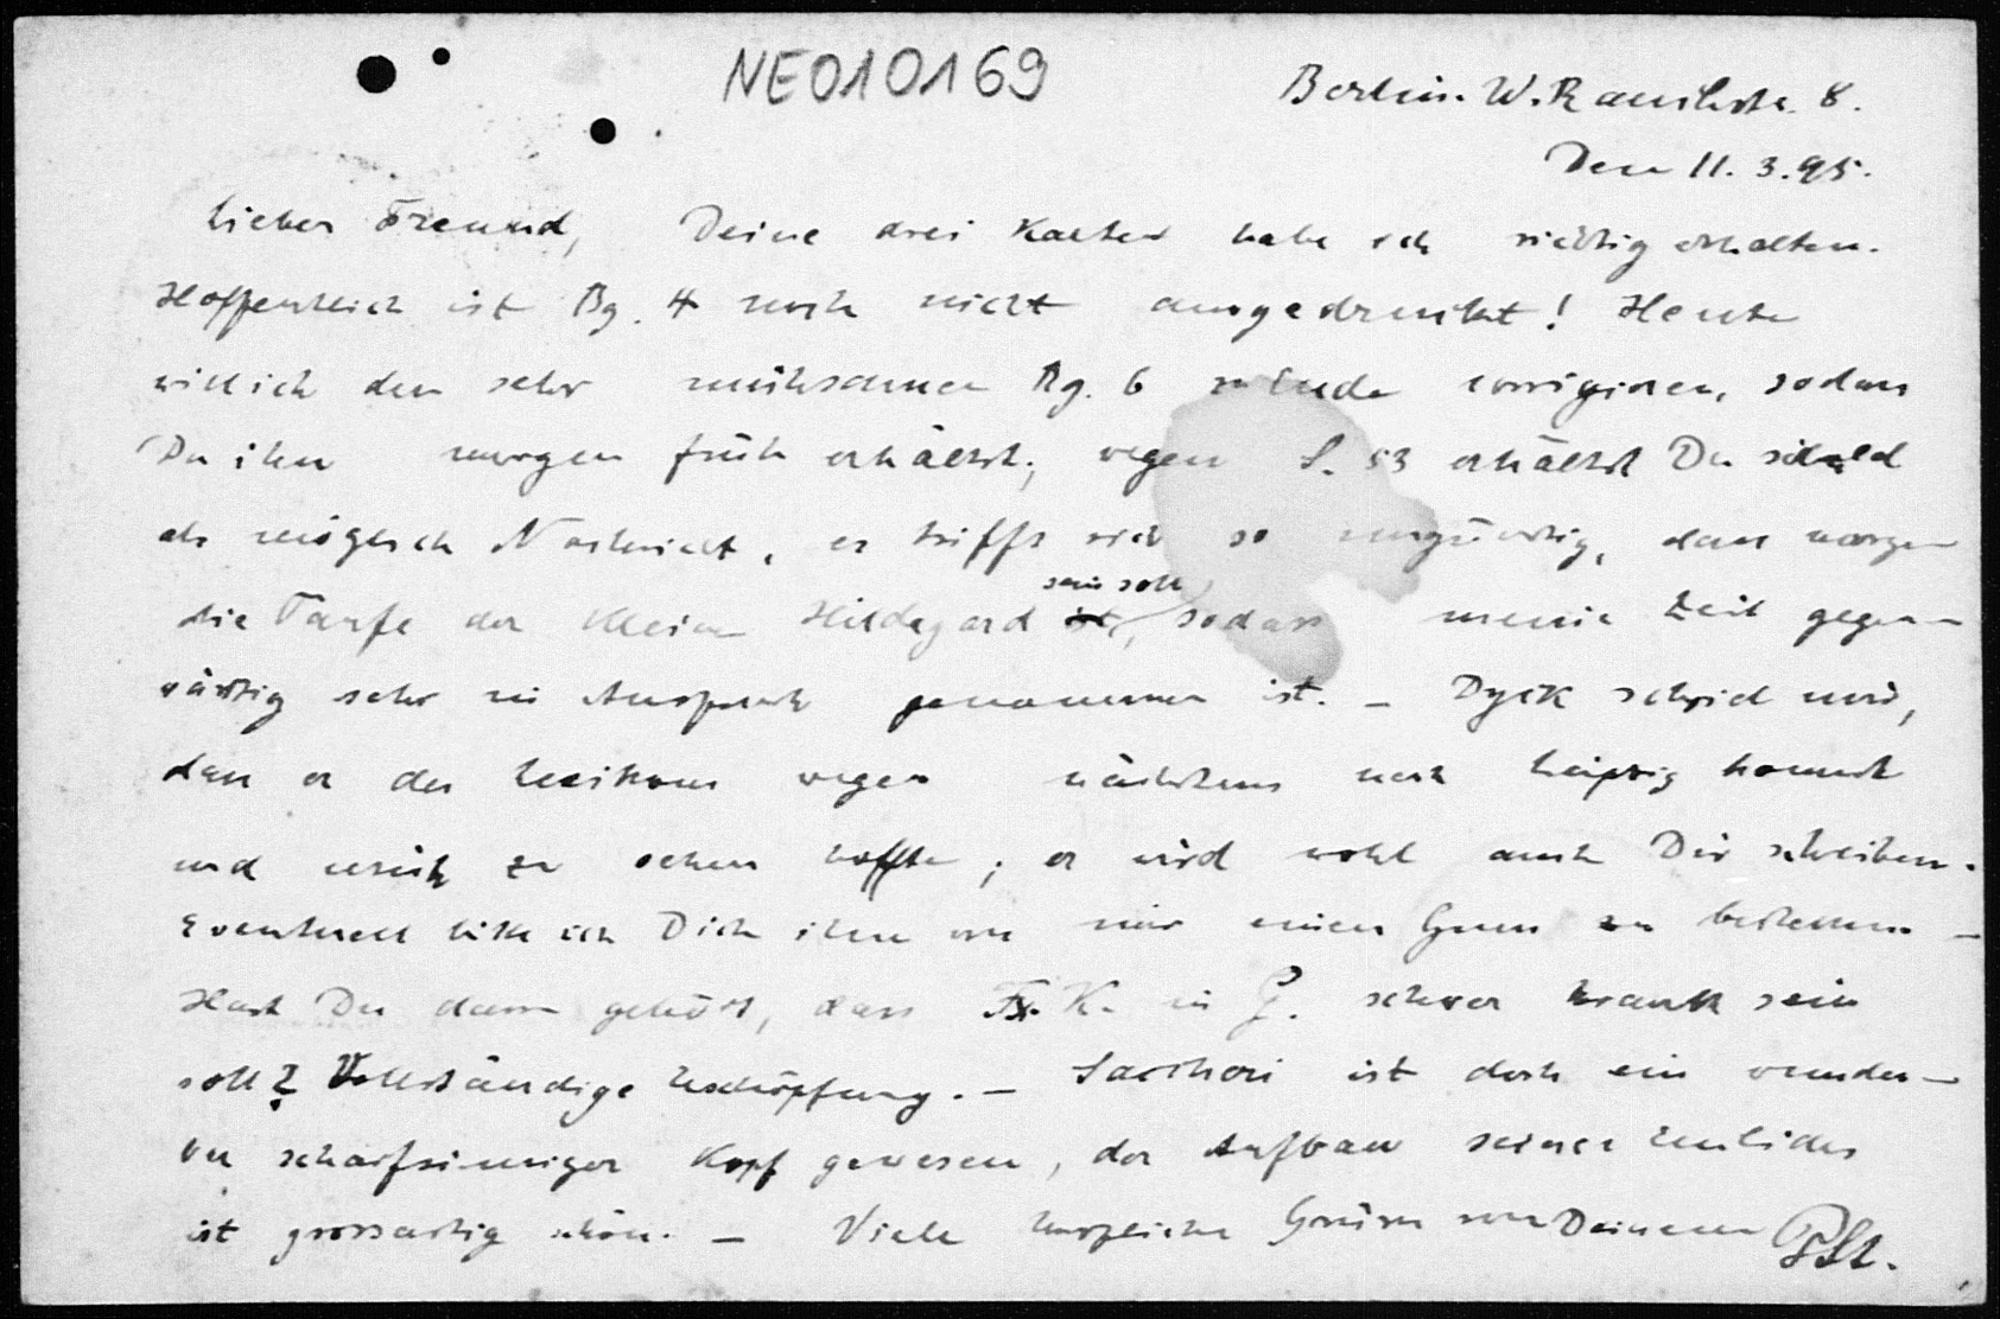 NE010169
Berlin. W. Rauchstr. 8.
Den 11. 3. 95.
Lieber Freund, Deine drei Karten habe ich richtig erhalten.
Hoffentlich ist Bg. 4 noch nicht ausgedruckt! Heute
will ich den sehr mühsamen Bg. 6 zu Ende corrigiren, sodass
Du ihn morgen früh erhältst; wegen S. 53 erhältst Du sobald
als möglich Nachricht, es trifft sich so ungünstig, dass morgen
die Taufe der kleinen Hildegard sein soll, sodass meine Zeit gegen-
wärtig sehr in Anspruch genommen ist. – Dyck schrieb mir,
dass er des Lexikons wegen nächstens nach Leipzig kommt
und mich zu sehen hoffte; er wird wohl auch Dir schreiben.
Eventuell bitte ich Dich ihm von mir einen Gruss zu bestellen. –
Hast Du davon gehört, dass F. K. in G. schwer krank sein
soll? Vollständige Erschöpfung. – Saccheri ist doch ein wunder-
bar scharfsinniger Kopf gewesen, der Aufbau seines Euclides
ist grossartig schön. – Viele herzliche Grüsse von Deinem PSt.